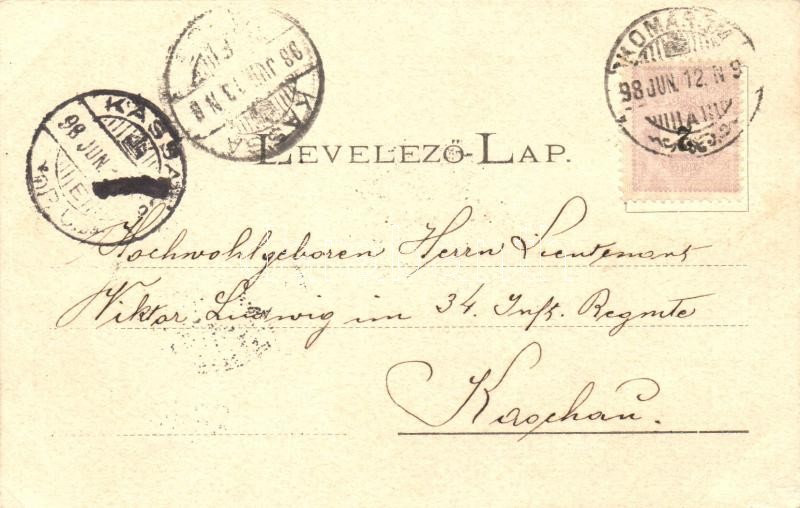 KASSA
98 JUN. 13 N 8
KASSA
98 JUN.
KOMÁROM
98 JUN. 12. N 9
2
LEVELEZŐ-LAP.
Hochwohlgeboren Herrn Lieutenant
Viktor Ludwig im 34. Inft. Regmte
Kaschau.